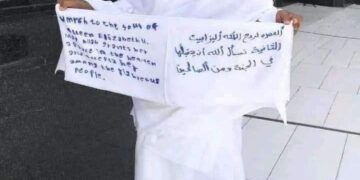 UMRAH to the soul of
Queen Elizabeth II,
May Allah grants her
in the heaven
and accepts her
among the righteous
people.
العمرة لروح الملكة اليزابيث
الثانية نسأل الله أن يتقبلها
في الجنة ومن الصالحين